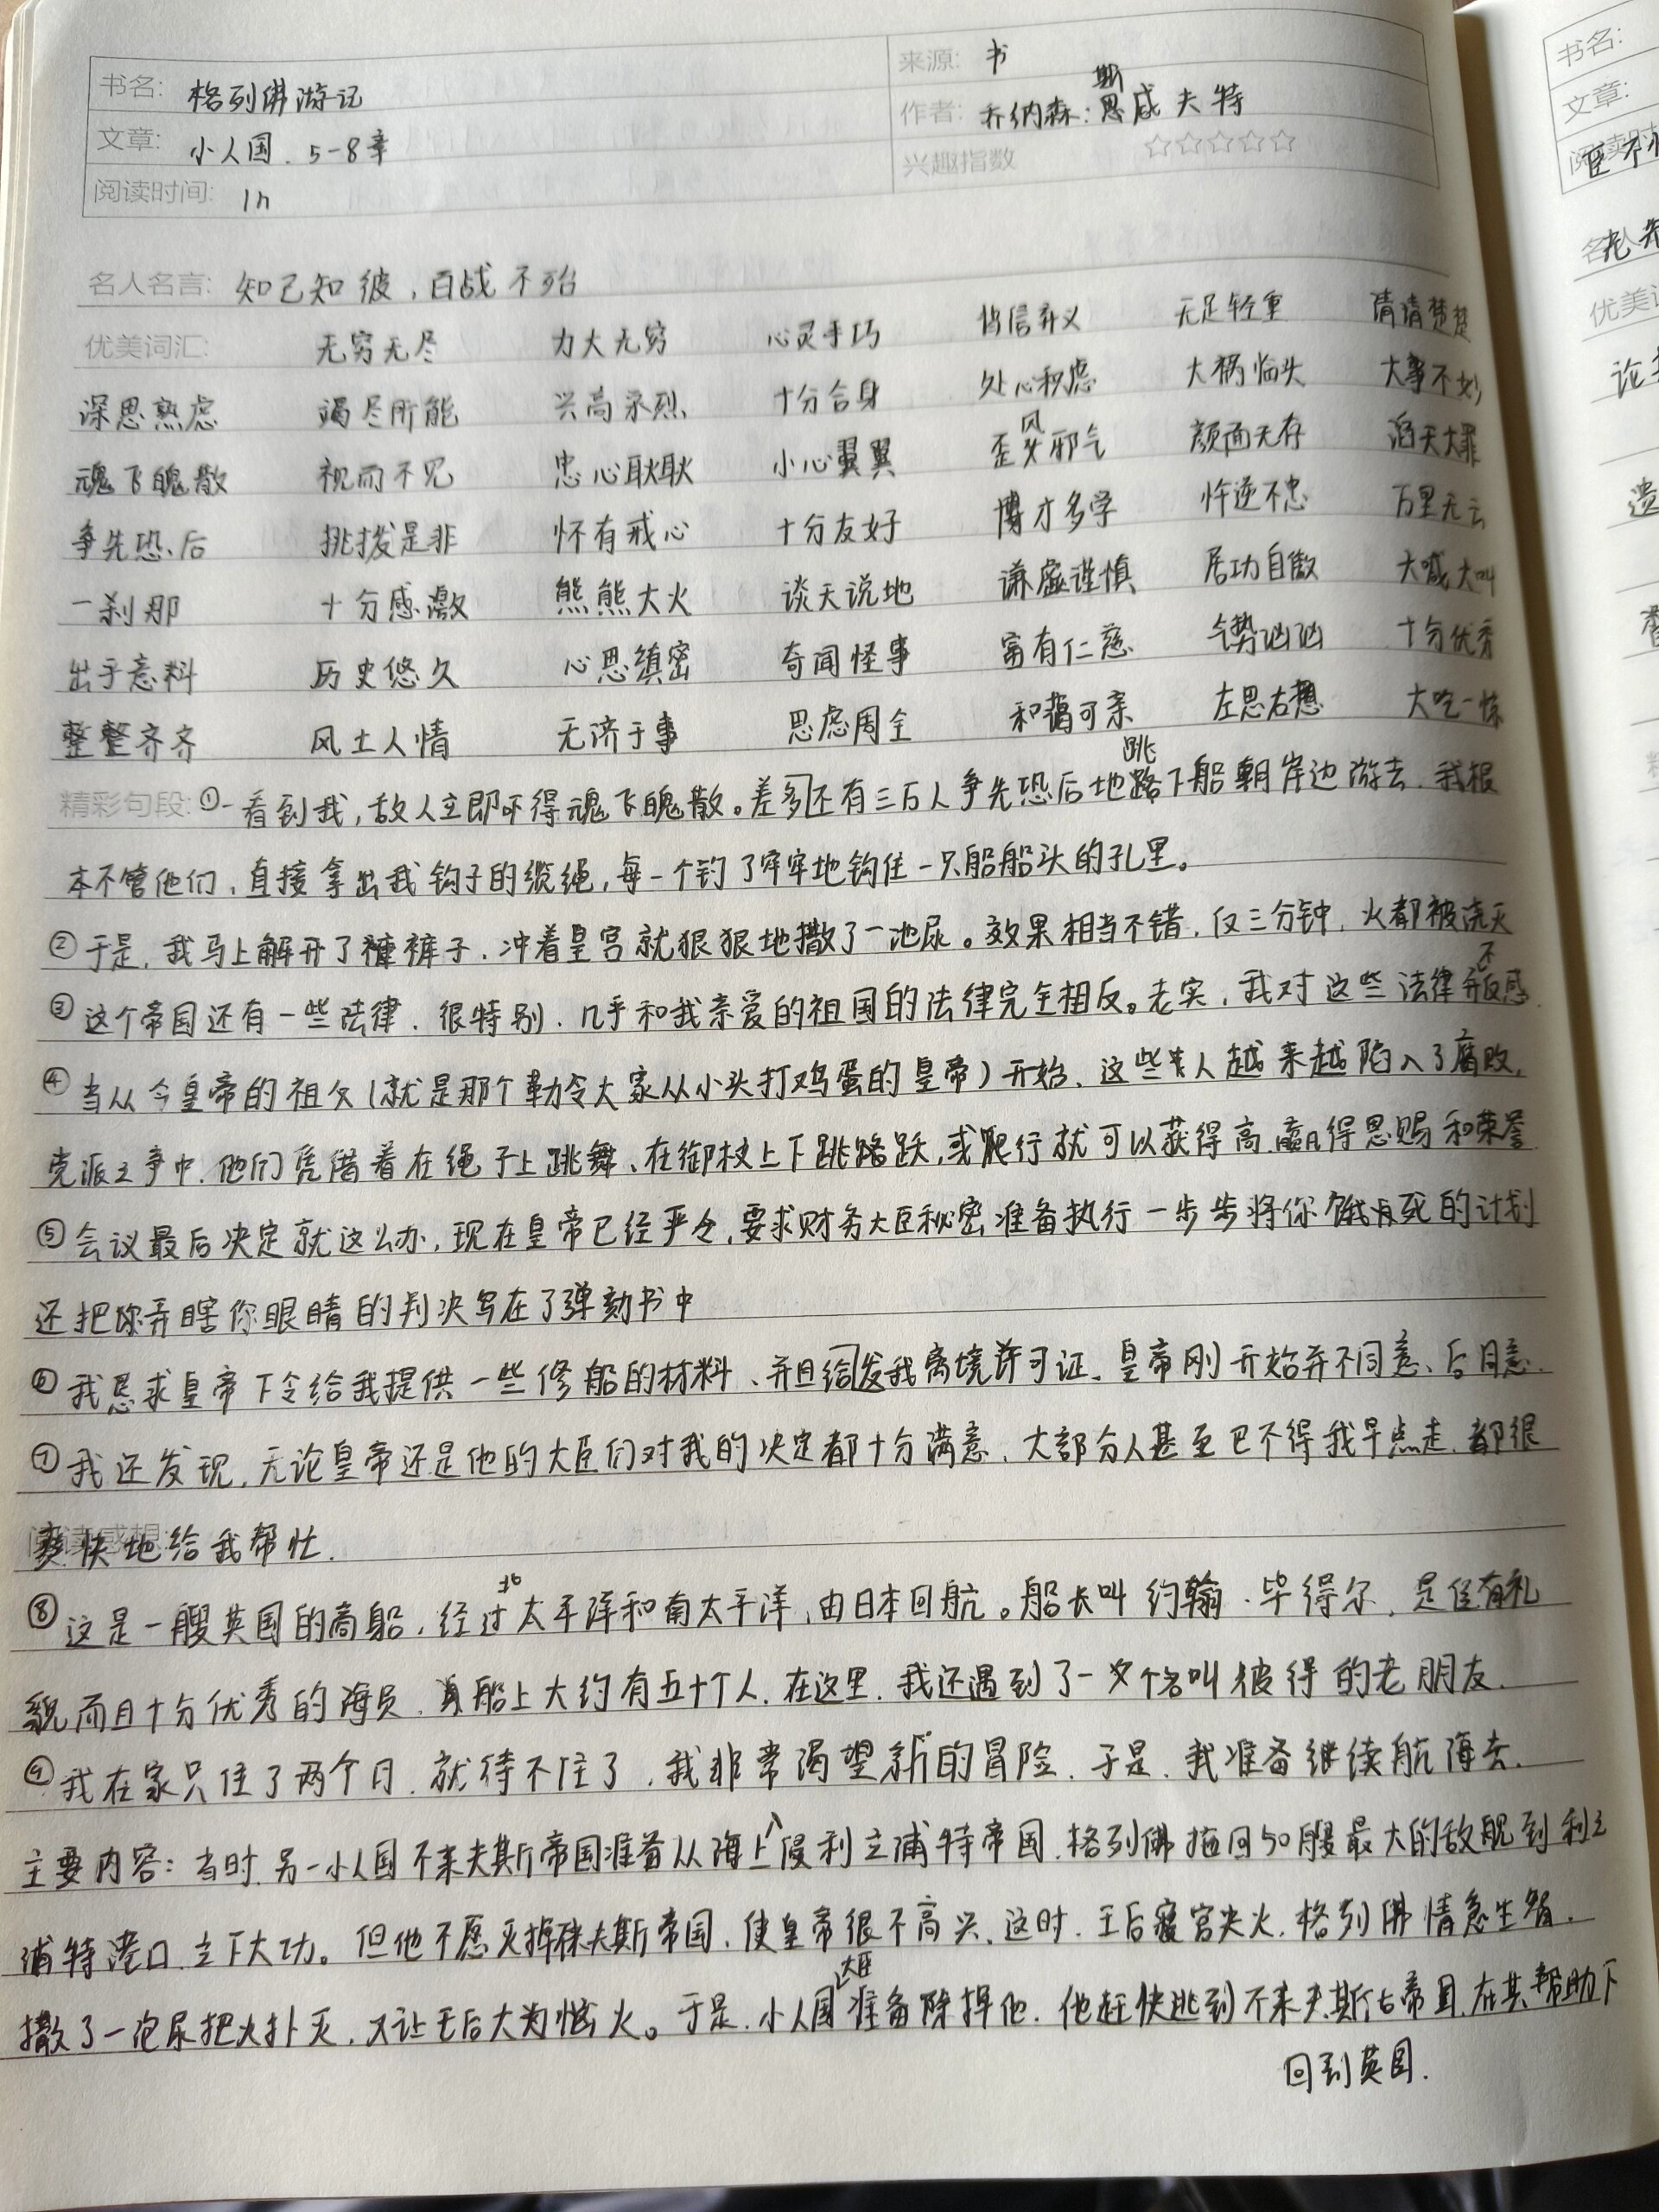 书名: 格列佛游记 来源: 书
文章: 小人国. 5-8章 作者: 乔纳森·斯威夫特
阅读时间: 1h 兴趣指数 ☆☆☆☆☆
名人名言: 知己知彼,百战不殆
优美词汇: 无穷无尽 力大无穷 心灵手巧 背信弃义 无足轻重 清清楚楚
深思熟虑 竭尽所能 兴高采烈 十分合身 处心积虑 大祸临头 大事不妙
魂飞魄散 视而不见 忠心耿耿 小心翼翼 歪风邪气 颜面无存 滔天大罪
争先恐后 挑拨是非 怀有戒心 十分友好 博才多学 忤逆不忠 万里无云
一刹那 十分感激 熊熊大火 谈天说地 谦虚谨慎 居功自傲 大喊大叫
出于意料 历史悠久 心思缜密 奇闻怪事 富有仁慈 气势汹汹 十分优秀
整整齐齐 风土人情 无济于事 思虑周全 和蔼可亲 左思右想 大吃一惊
精彩句段: ①一看到我,敌人立即吓得魂飞魄散。差多还有三万人争先恐后地跳下船朝岸边游去.我根
本不管他们,直接拿出我钩子的缆绳,每一个钓了牢牢地钩住一只船船头的孔里。
②于是,我马上解开了裤子.冲着皇宫就狠狠地撒了一泡尿。效果相当不错,仅三分钟,火都被浇灭
③这个帝国还有一些法律.很特别.几乎和我亲爱的祖国的法律完全相反。老实,我对这些法律不反感.
④当从今皇帝的祖父(就是那个勒令大家从小头打鸡蛋的皇帝)开始、这些人越来越陷入了腐败,
党派之争中.他们凭借着在绳子上跳舞、在御杖上下跳跃,或爬行就可以获得高.赢得恩赐和荣誉
⑤会议最后决定就这么办,现在皇帝已经严令,要求财务大臣秘密准备执行一步步将你饿死的计划
还把你弄瞎你眼睛的判决写在了弹劾书中
⑥我恳求皇帝下令给我提供一些修船的材料、并且给发我离境许可证。皇帝刚开始并不同意、后同意.
⑦我还发现,无论皇帝还是他的大臣们对我的决定都十分满意、大部分人甚至巴不得我早点走.都很
阅读感想:
爽快地给我帮忙.
⑧这是一艘英国的商船,经过北太平洋和南太平洋,由日本回航。船长叫约翰·毕得尔,是位有礼
貌而且十分优秀的海员.船上大约有五十个人.在这里.我还遇到了一个名叫彼得的老朋友.
⑨我在家只住了两个月.就待不住了,我非常渴望新的冒险.于是.我准备继续航海去.
主要内容:当时.另一小人国不来夫斯帝国准备从海上入侵利立浦特帝国.格列佛拖回50艘最大的敌舰到利立
浦特港口.立下大功。但他不愿灭掉不来夫斯帝国,使皇帝很不高兴.这时.王后寝宫失火.格列佛情急生智.
撒了一泡尿把火扑灭.又让王后大为恼火。于是.小人国大臣准备除掉他.他赶快逃到不来夫斯古帝国.在其帮助下
回到英国.